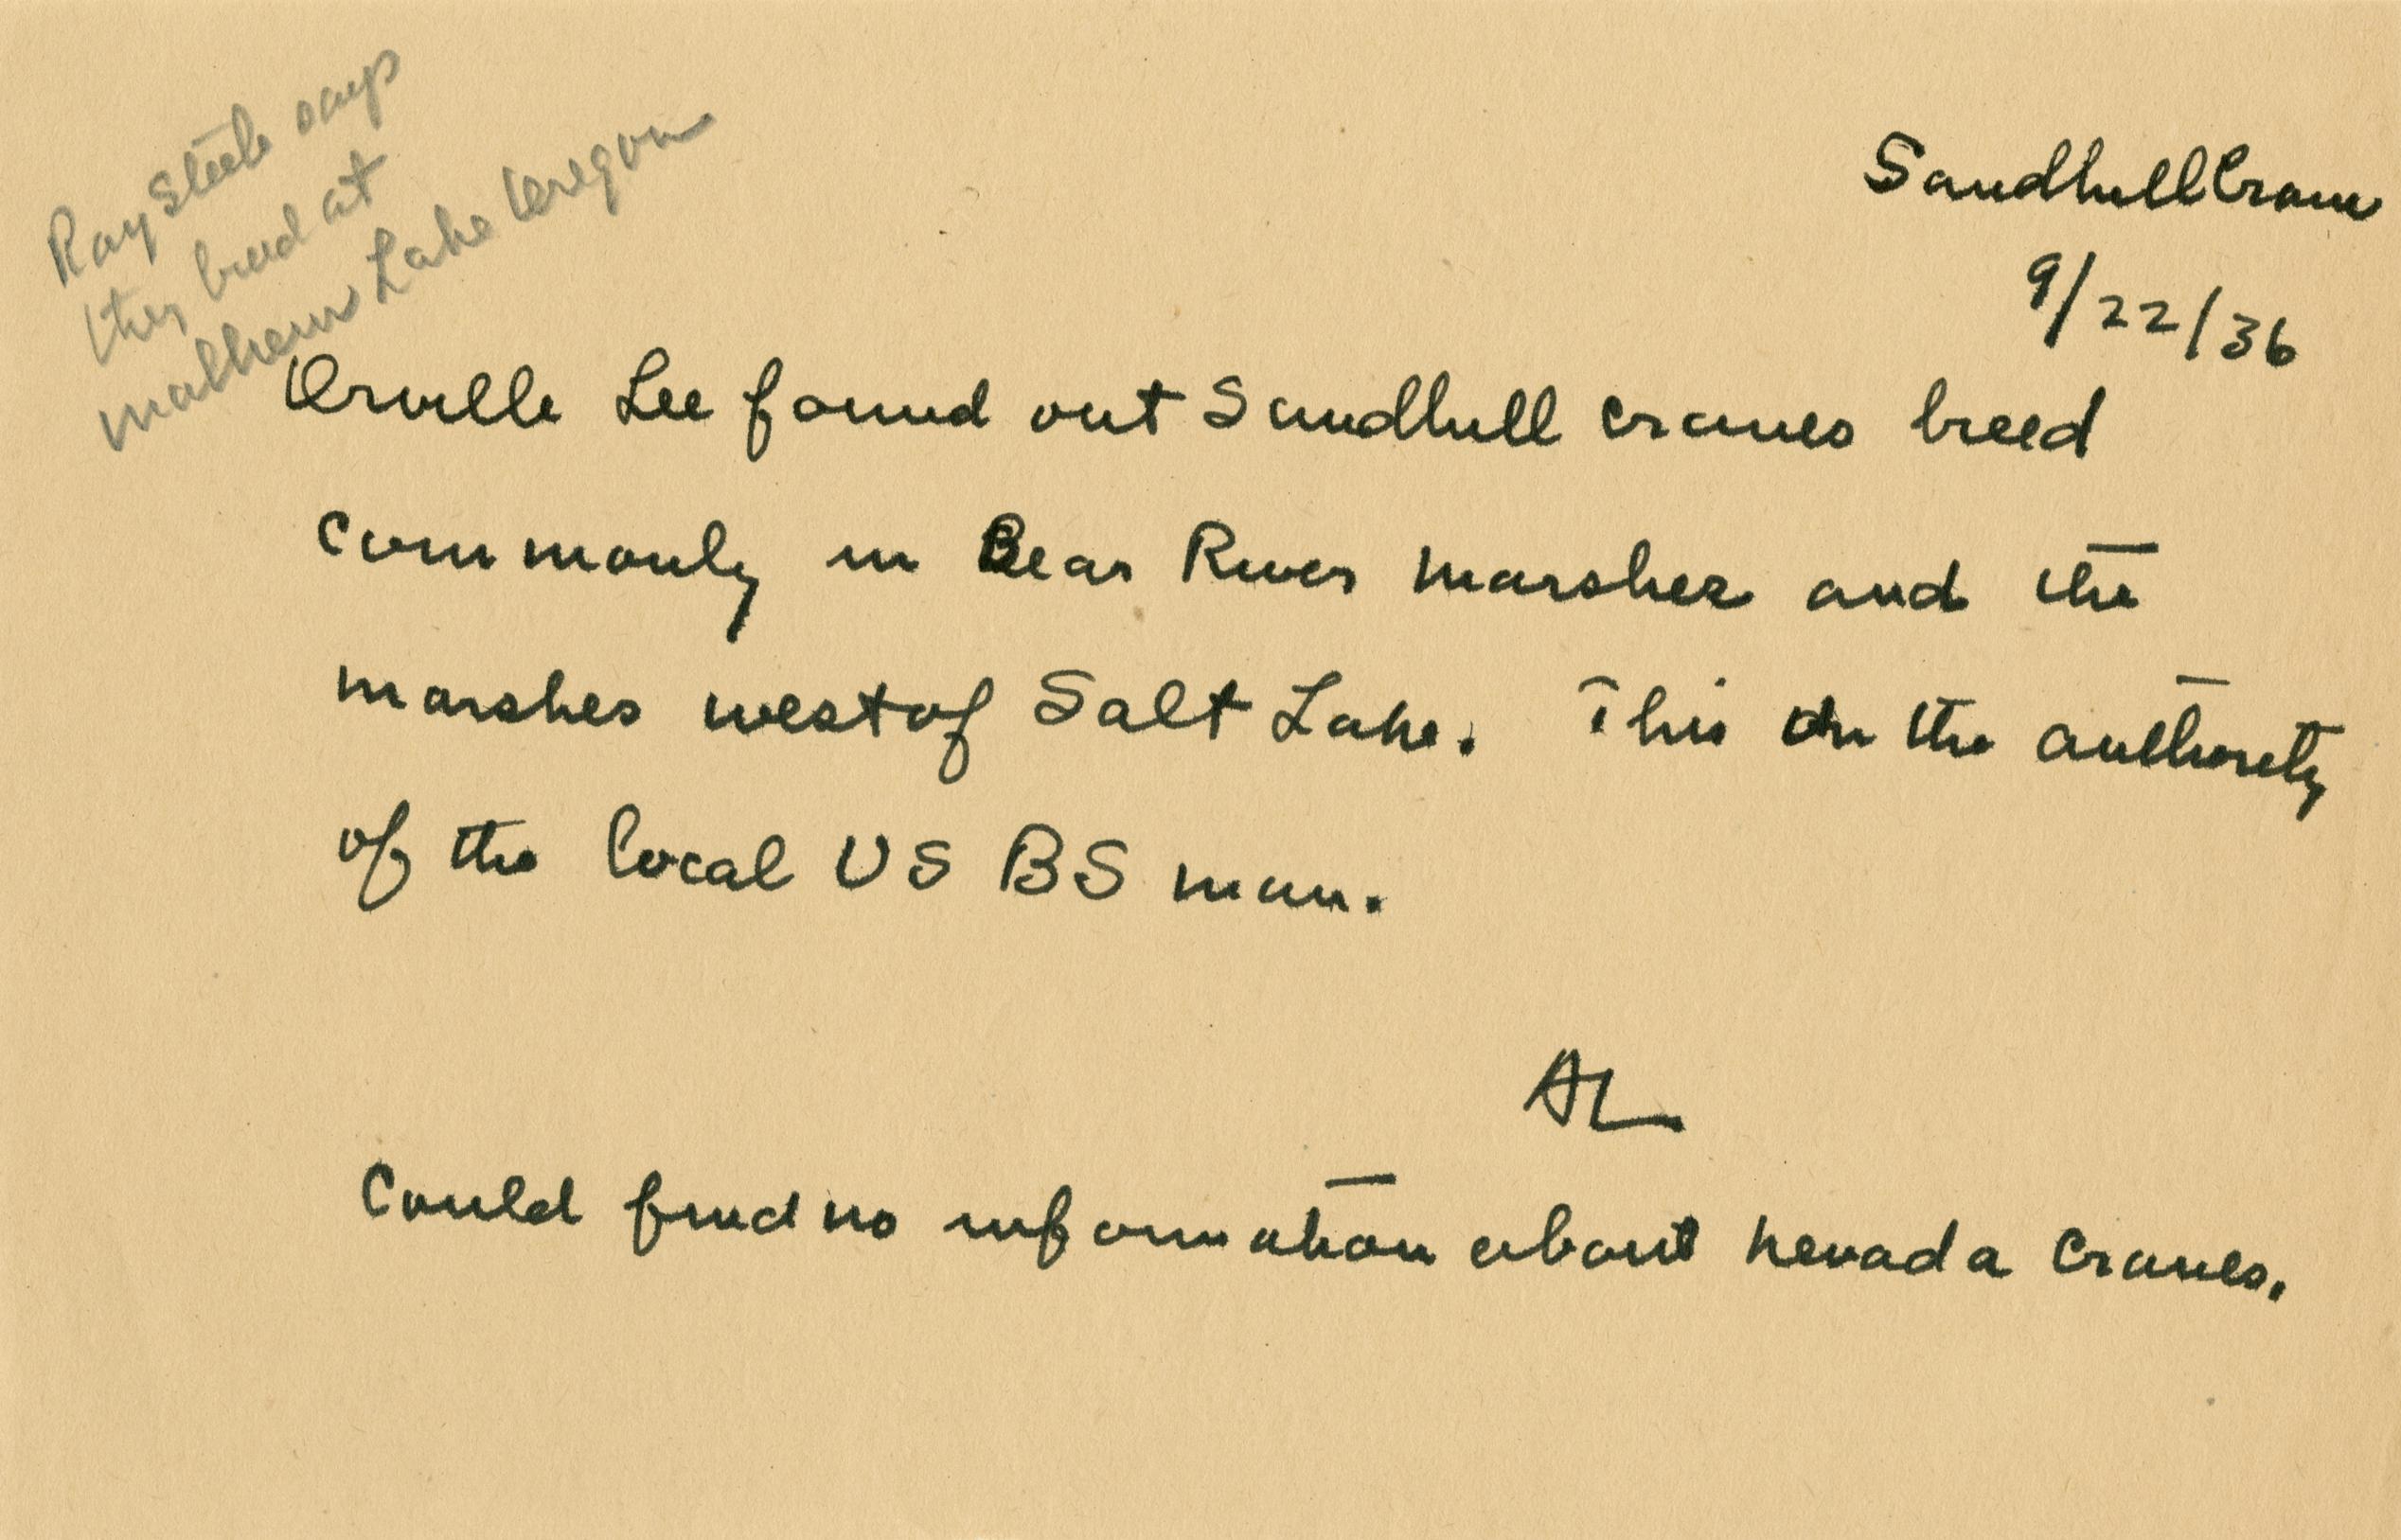 Ray Steele says
they breed at
Malheur Lake Oregon
Sandhill Crane
9/22/36
Orville Lee found out Sandhill cranes breed
commonly in Bear River marshes and the
marshes west of Salt Lake. This on the authority
of the local US BS man.
AL
Could find no information about Nevada cranes.